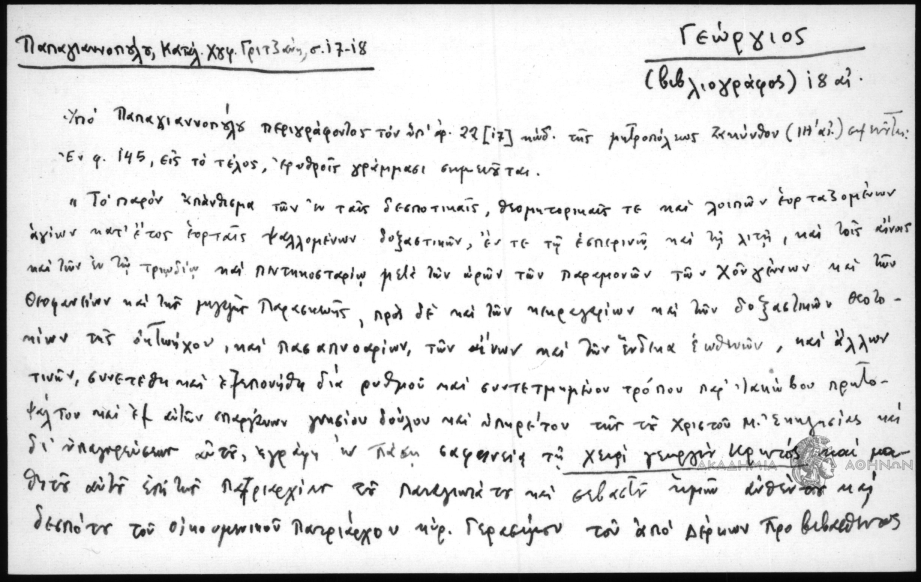 Παπαγιαννοπούλου, Κατάλ. Χγφ. Γριτζάνη, σ. 17-18
Γεώργιος
(βιβλιογράφος) 18 αἰ.
Ὑπὸ Παπαγιαννοπούλου περιγράφοντος τὸν ὑπ' ἀρ. 22 [17] κώδ. τῆς μητροπόλεως Ζακύνθου (ΙΗ' αἰ.)
Ἐν φ. 145, εἰς τὸ τέλος, ἐρυθροῖς γράμμασι σημειοῦται.
"Τὸ παρὸν ἀπάνθισμα τῶν ἐν ταῖς δεσποτικαῖς, θεομητορικαῖς τε καὶ λοιπῶν ἑορταζομένων
ἁγίων κατ' ἔτος ἑορταῖς ψαλλομένων δοξαστικῶν, ἔν τε τῷ ἑσπερινῷ καὶ τῇ λιτῇ, καὶ τοῖς αἴνοις
καὶ τῶν ἐν τῷ τριῳδίῳ καὶ πεντηκοσταρίῳ μετὰ τῶν ὡρῶν τῶν παραμονῶν τῶν Χ/γέννων καὶ τῶν
Θεοφανείων καὶ τῆς μεγάλης Παρασκευῆς, πρὸς δὲ καὶ τῶν κεκραγαρίων καὶ τῶν δοξαστικῶν θεοτο-
κίων τῆς ὀκτωήχου, καὶ πασαπνοαρίων, τῶν αἴνων καὶ τῶν ἕνδεκα ἑωθινῶν, καὶ ἄλλων
τινῶν, συνετέθη καὶ ἐξεπονήθη διὰ ῥυθμοῦ καὶ συντετμημένου τρόπου παρ' Ἰακώβου πρωτο-
ψάλτου καὶ ἐξ αὐτῶν σπαργάνων γνησίου δούλου καὶ ὑπηρέτου τῆς τοῦ Χριστοῦ Μ. Ἐκκλησίας καὶ
δι' ὑπαγορεύσεως αὐτοῦ, ἐγράφη ἐν πάσῃ σαφηνείᾳ τῇ χειρὶ γεωργίου Κρητός καὶ μα-
θητοῦ αὐτοῦ ἐπὶ τῆς Πατριαρχίας τοῦ Παναγιωτάτου καὶ σεβαστοῦ ἡμῶν αὐθέντου καὶ
δεσπότου τοῦ οἰκουμενικοῦ Πατριάρχου κύρ. Γερασίμου τοῦ ἀπὸ Δέρκων προβιβασθέντος
ΑΚΑΔΗΜΙΑ ΑΘΗΝΩΝ